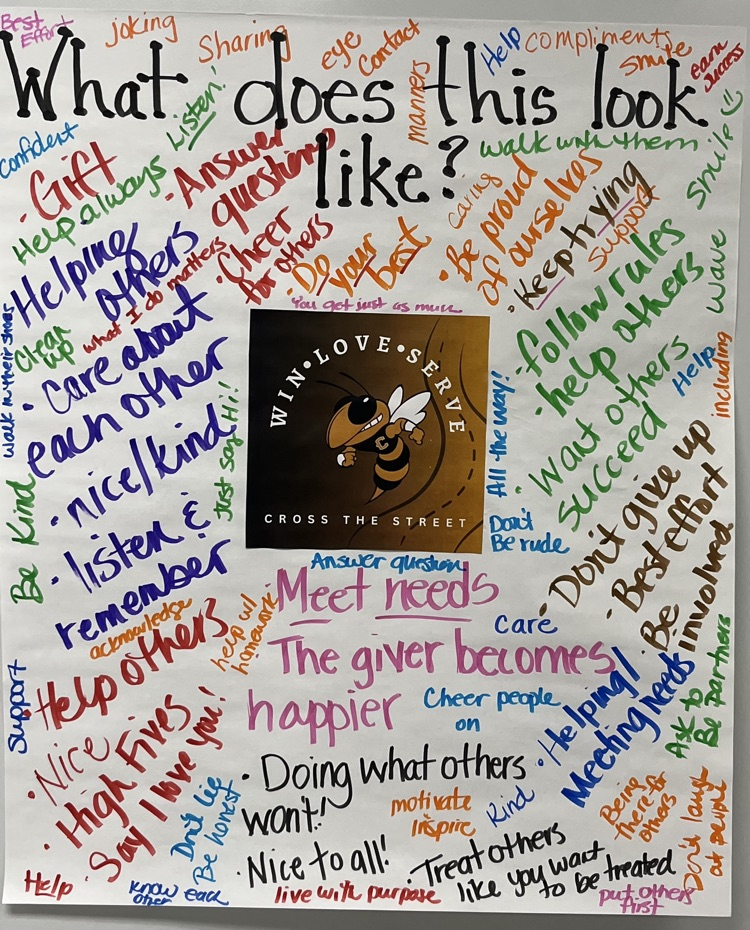 Best
Effort
joking
Sharing
eye
Contact
manners
Help
compliments
smile
earn
success
What does this look
like?
confident
Listen!
walk with them
smile
· Gift
Help always
· Answer
questions
caring
· Be proud
of ourselves
· Keep trying
support
wave
Helping
others
what I do matters
· Cheer
for others
· Do
your
best
You get just as much
· follow rules
· help others
walk in their shoes
Clean
up
· Care about
each other
Just say Hi!
WIN•LOVE•SERVE
C
CROSS THE STREET
All the way!
· Want others
succeed
Help
including
· nice/kind
Be Kind
· listen &
remember
Don't
Be rude
· Don't give up
· Best effort
· Be
involved
acknowledge
help w/
homework
Answer question
Meet needs
Care
The giver becomes
happier
Cheer people
on
Support
· Help others
· Nice
· High Fives
· Say I love you!
· Helping/
Meeting needs
Ask to
Be partners
· Doing what others
won't!
motivate
inspire
Kind
Being
there for
others
Don't laugh
at people
Don't lie
Be honest
· Nice to all!
· Treat others
like you want
to be treated
Help
know each
other
live with purpose
put others
first